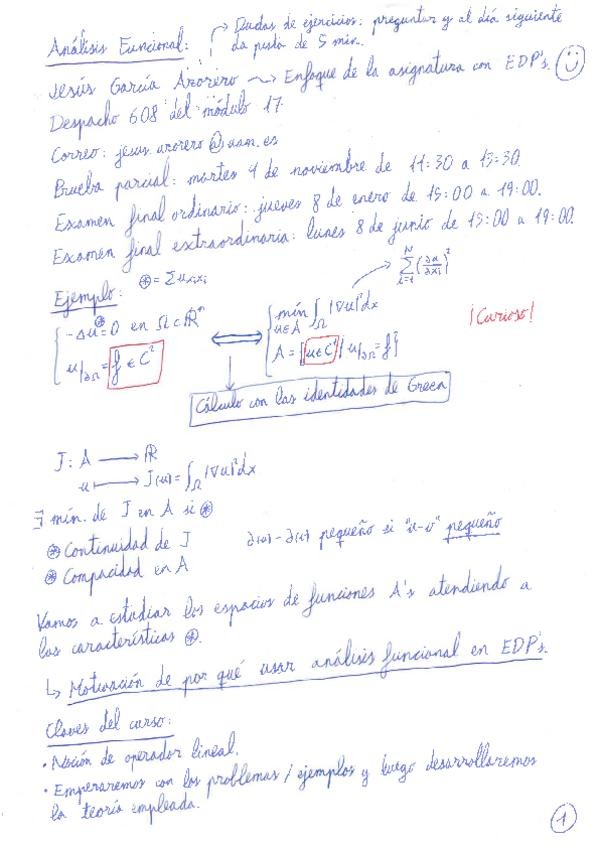 Análisis Funcional: → Dudas de ejercicios: preguntar y al día siguiente
da pista de 5 min.
Jesús García Azorero ⟿ Enfoque de la asignatura con EDP's. ☺
Despacho 608 del módulo 17.
Correo: jesus.azorero@uam.es
Prueba parcial: martes 4 de noviembre de 11:30 a 13:30.
Examen final ordinario: jueves 8 de enero de 15:00 a 19:00.
Examen final extraordinaria: lunes 8 de junio de 15:00 a 19:00.
Ejemplo: ⊛ = Σ u_{x_i x_i}
{ -Δu = 0 en Ω ⊂ ℝⁿ ⟺ { mín_{u∈A} ∫_Ω |∇u|² dx → Σ_{i=1}^{N} (∂u/∂x_i)² ¡Curioso!
u|_∂Ω = f ∈ C² A = {u ∈ C² | u|_∂Ω = f}
Cálculo con las identidades de Green
J: A ⟶ ℝ
u ⟼ J(u) = ∫_Ω |∇u|² dx
∃ mín. de J en A si ⊛
⊛ Continuidad de J J(u) - J(v) pequeño si "u-v" pequeño
⊛ Compacidad en A
Vamos a estudiar los espacios de funciones A's atendiendo a
las características ⊛.
↳ Motivación de por qué usar análisis funcional en EDP's.
Claves del curso:
· Noción de operador lineal.
· Empezaremos con los problemas / ejemplos y luego desarrollaremos
la teoría empleada.
1